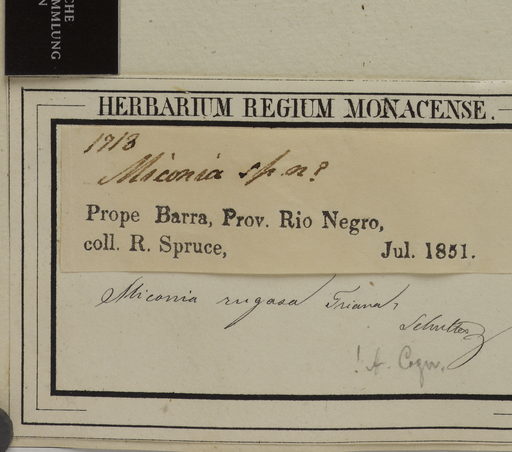 CHE
MMLUNG
N
HERBARIUM REGIUM MONACENSE.
1718
Miconia sp. n?
Prope Barra, Prov. Rio Negro,
coll. R. Spruce, Jul. 1851.
Miconia rugosa Triana,
Schultes
! A. Cogn.